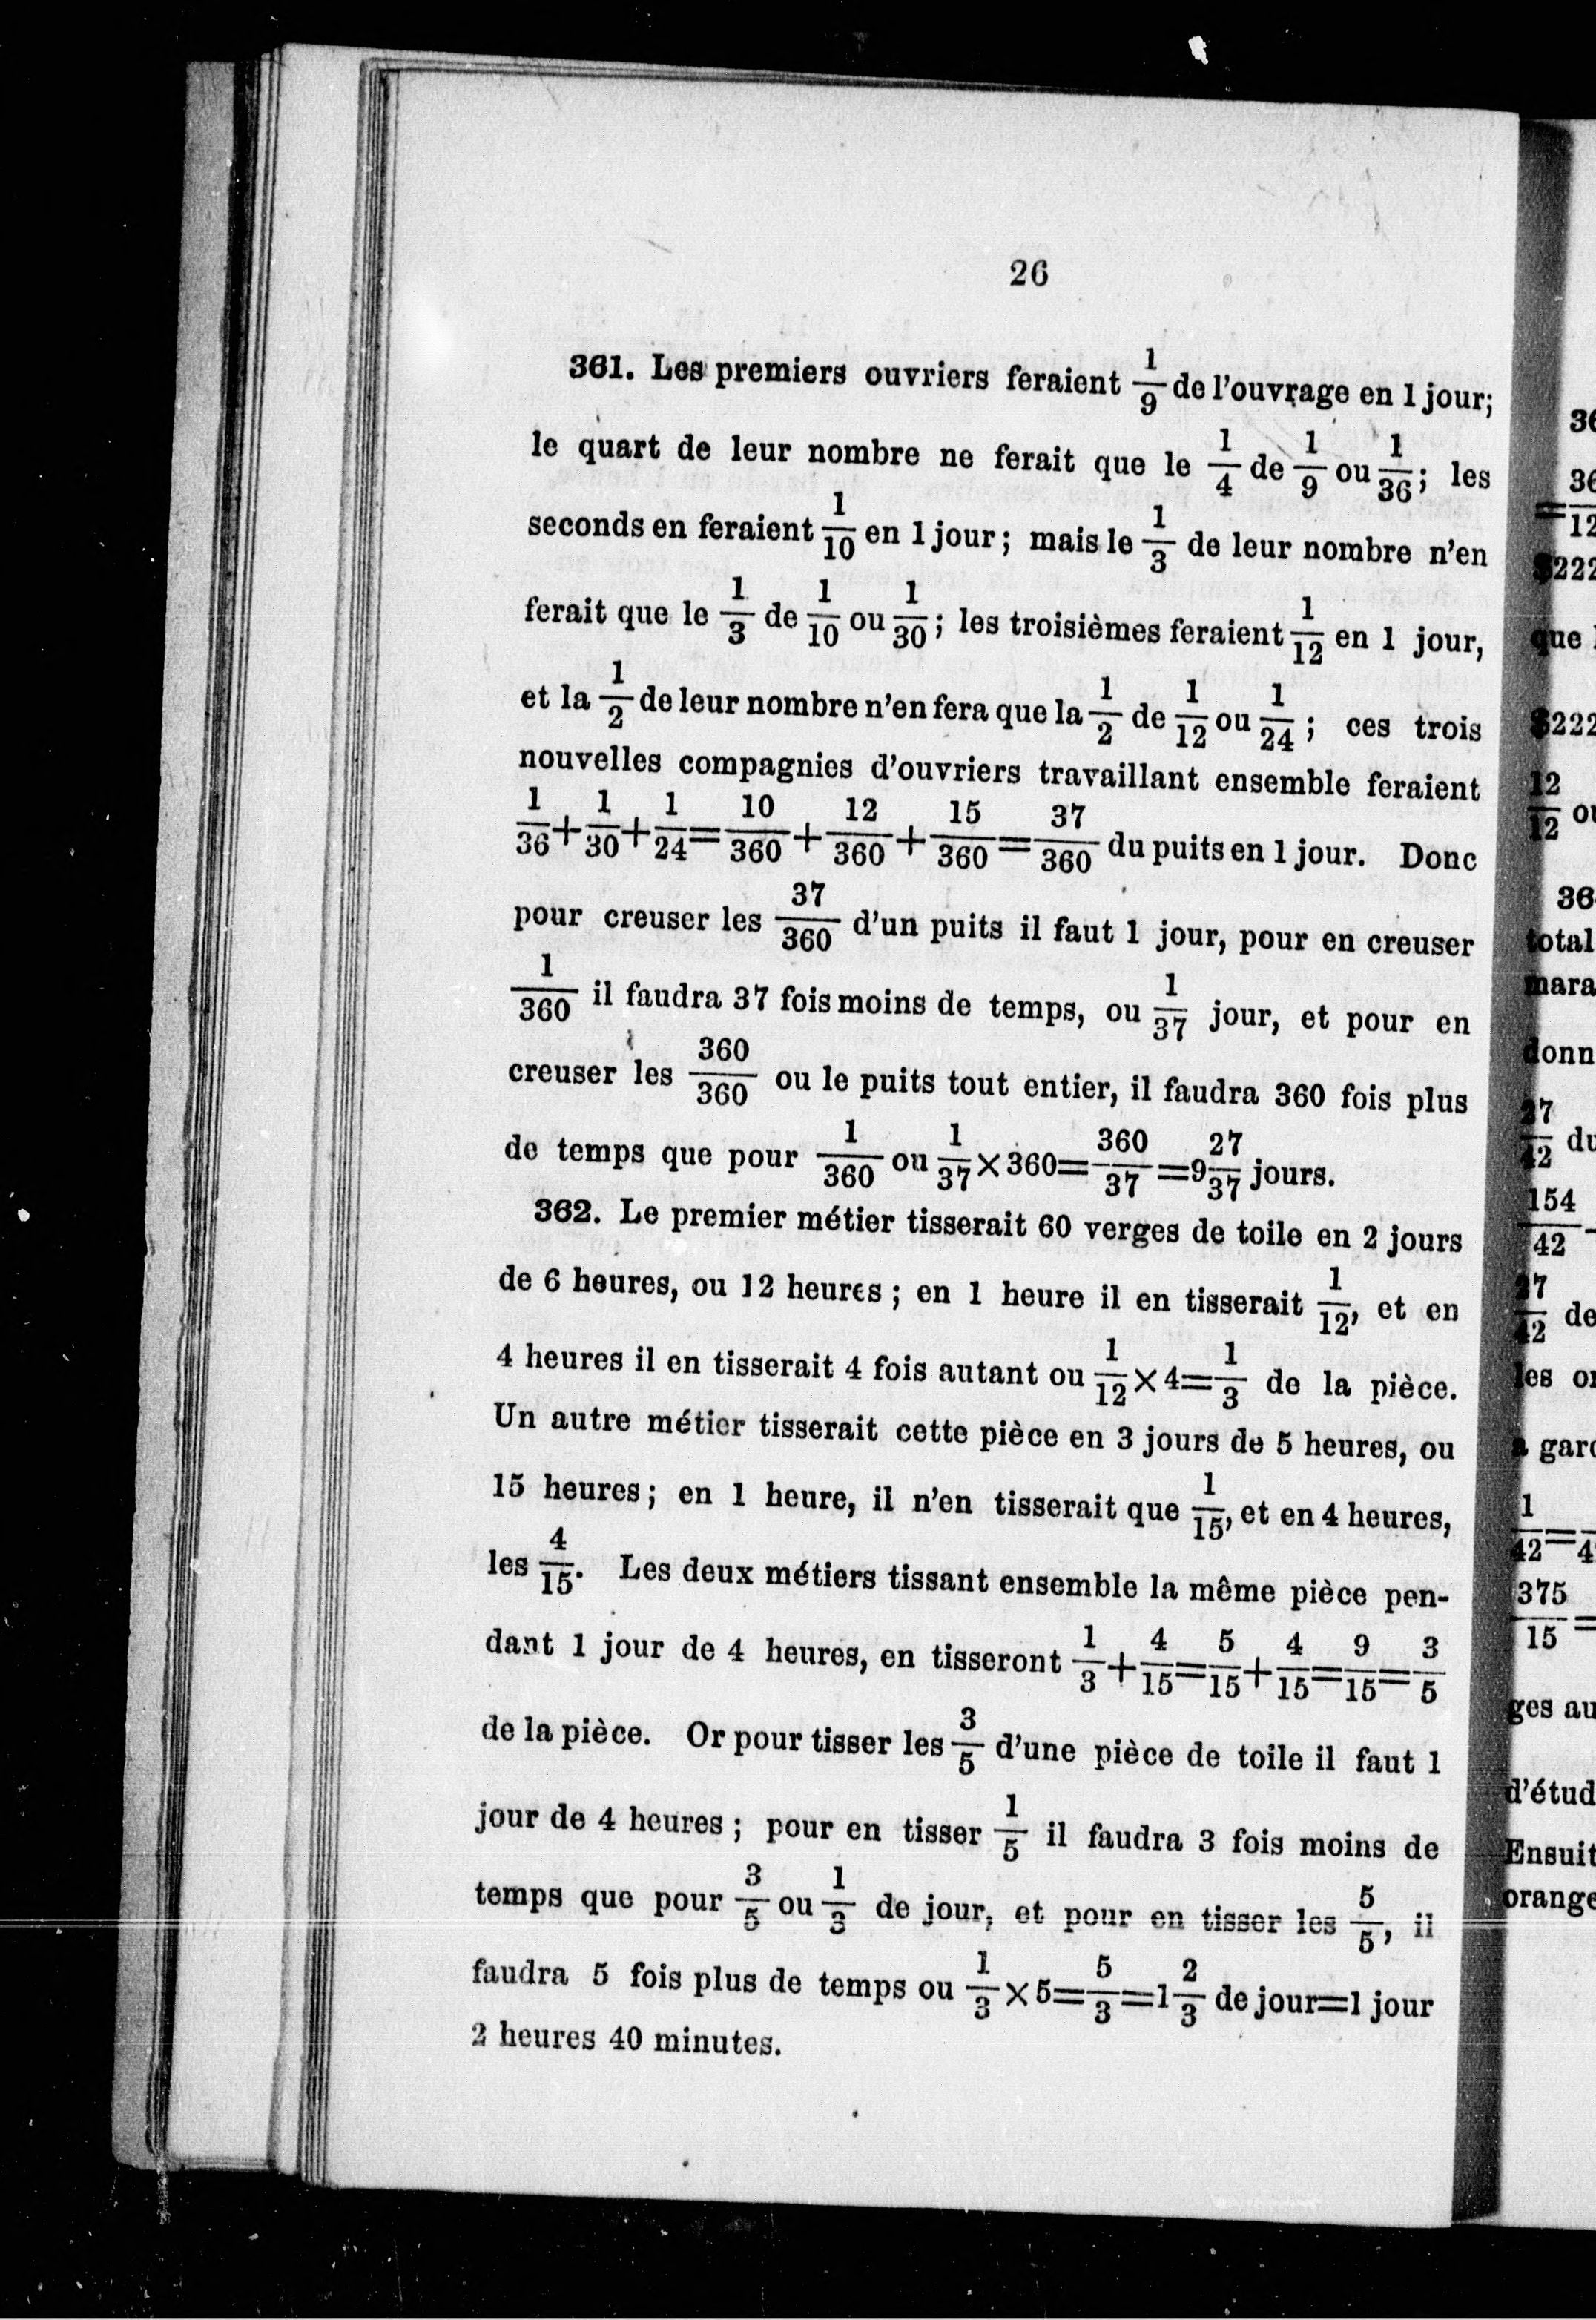 26
361. Les premiers ouvriers feraient 1/9 de l'ouvrage en 1 jour;
le quart de leur nombre ne ferait que le 1/4 de 1/9 ou 1/36; les
seconds en feraient 1/10 en 1 jour; mais le 1/3 de leur nombre n'en
ferait que le 1/3 de 1/10 ou 1/30; les troisièmes feraient 1/12 en 1 jour,
et la 1/2 de leur nombre n'en fera que la 1/2 de 1/12 ou 1/24; ces trois
nouvelles compagnies d'ouvriers travaillant ensemble feraient
1/36+1/30+1/24=10/360+12/360+15/360=37/360 du puits en 1 jour. Donc
pour creuser les 37/360 d'un puits il faut 1 jour, pour en creuser
1/360 il faudra 37 fois moins de temps, ou 1/37 jour, et pour en
creuser les 360/360 ou le puits tout entier, il faudra 360 fois plus
de temps que pour 1/360 ou 1/37×360=360/37=9 27/37 jours.
362. Le premier métier tisserait 60 verges de toile en 2 jours
de 6 heures, ou 12 heures; en 1 heure il en tisserait 1/12, et en
4 heures il en tisserait 4 fois autant ou 1/12×4=1/3 de la pièce.
Un autre métier tisserait cette pièce en 3 jours de 5 heures, ou
15 heures; en 1 heure, il n'en tisserait que 1/15, et en 4 heures,
les 4/15. Les deux métiers tissant ensemble la même pièce pen-
dant 1 jour de 4 heures, en tisseront 1/3+4/15=5/15+4/15=9/15=3/5
de la pièce. Or pour tisser les 3/5 d'une pièce de toile il faut 1
jour de 4 heures; pour en tisser 1/5 il faudra 3 fois moins de
temps que pour 3/5 ou 1/3 de jour, et pour en tisser les 5/5, il
faudra 5 fois plus de temps ou 1/3×5=5/3=1 2/3 de jour=1 jour
2 heures 40 minutes.